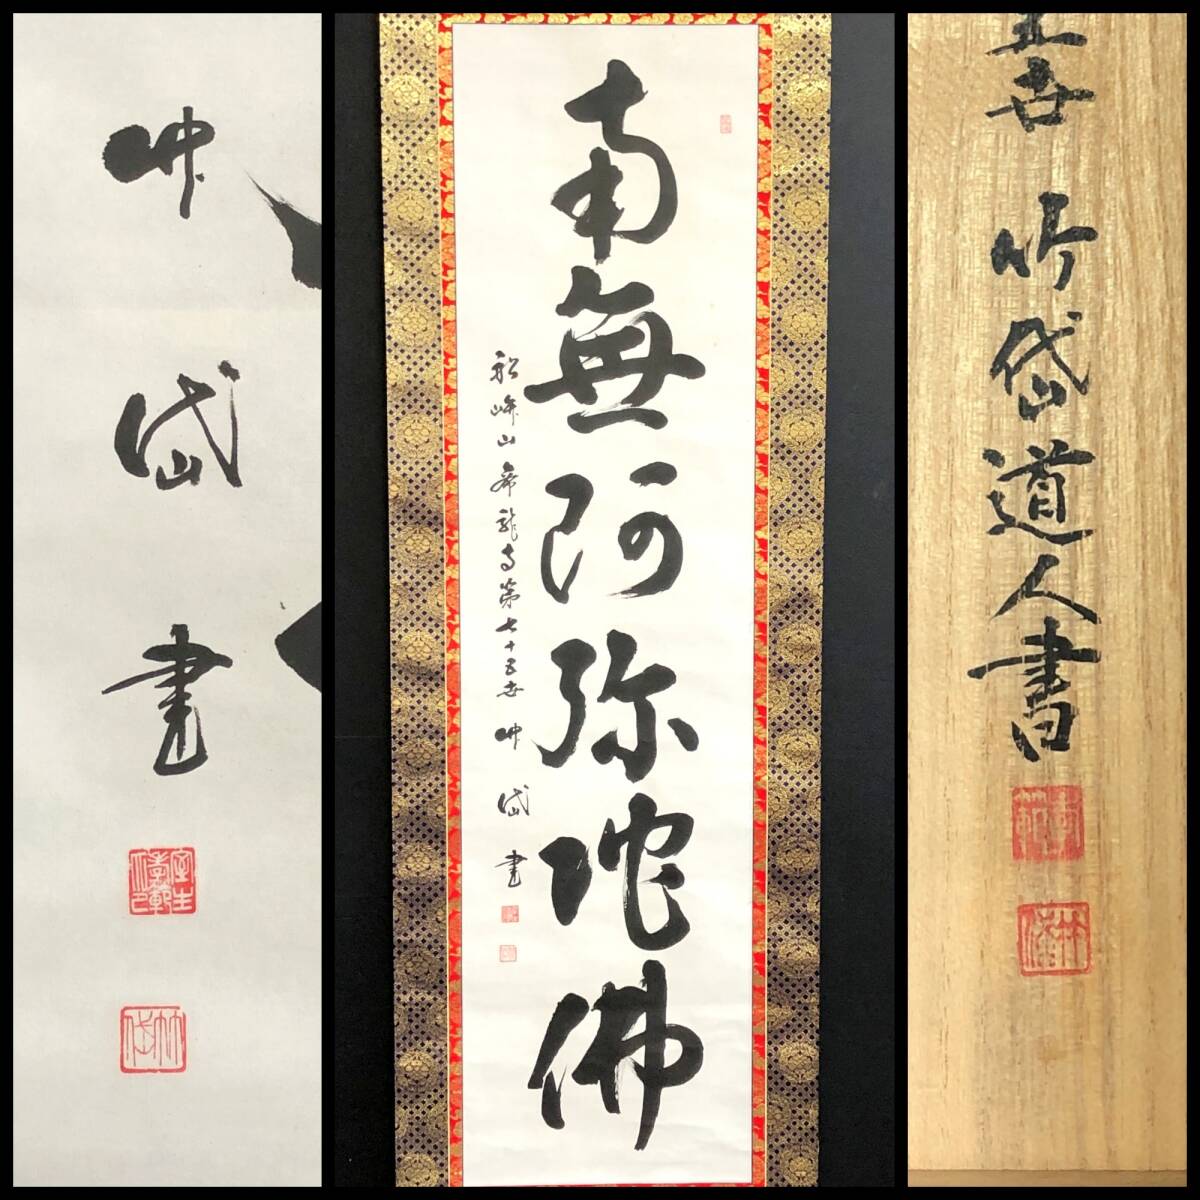 竹
岱
書
南無阿弥陀佛
船峰山舞龍寺第七十五世竹岱書
世竹岱道人書
竹岱